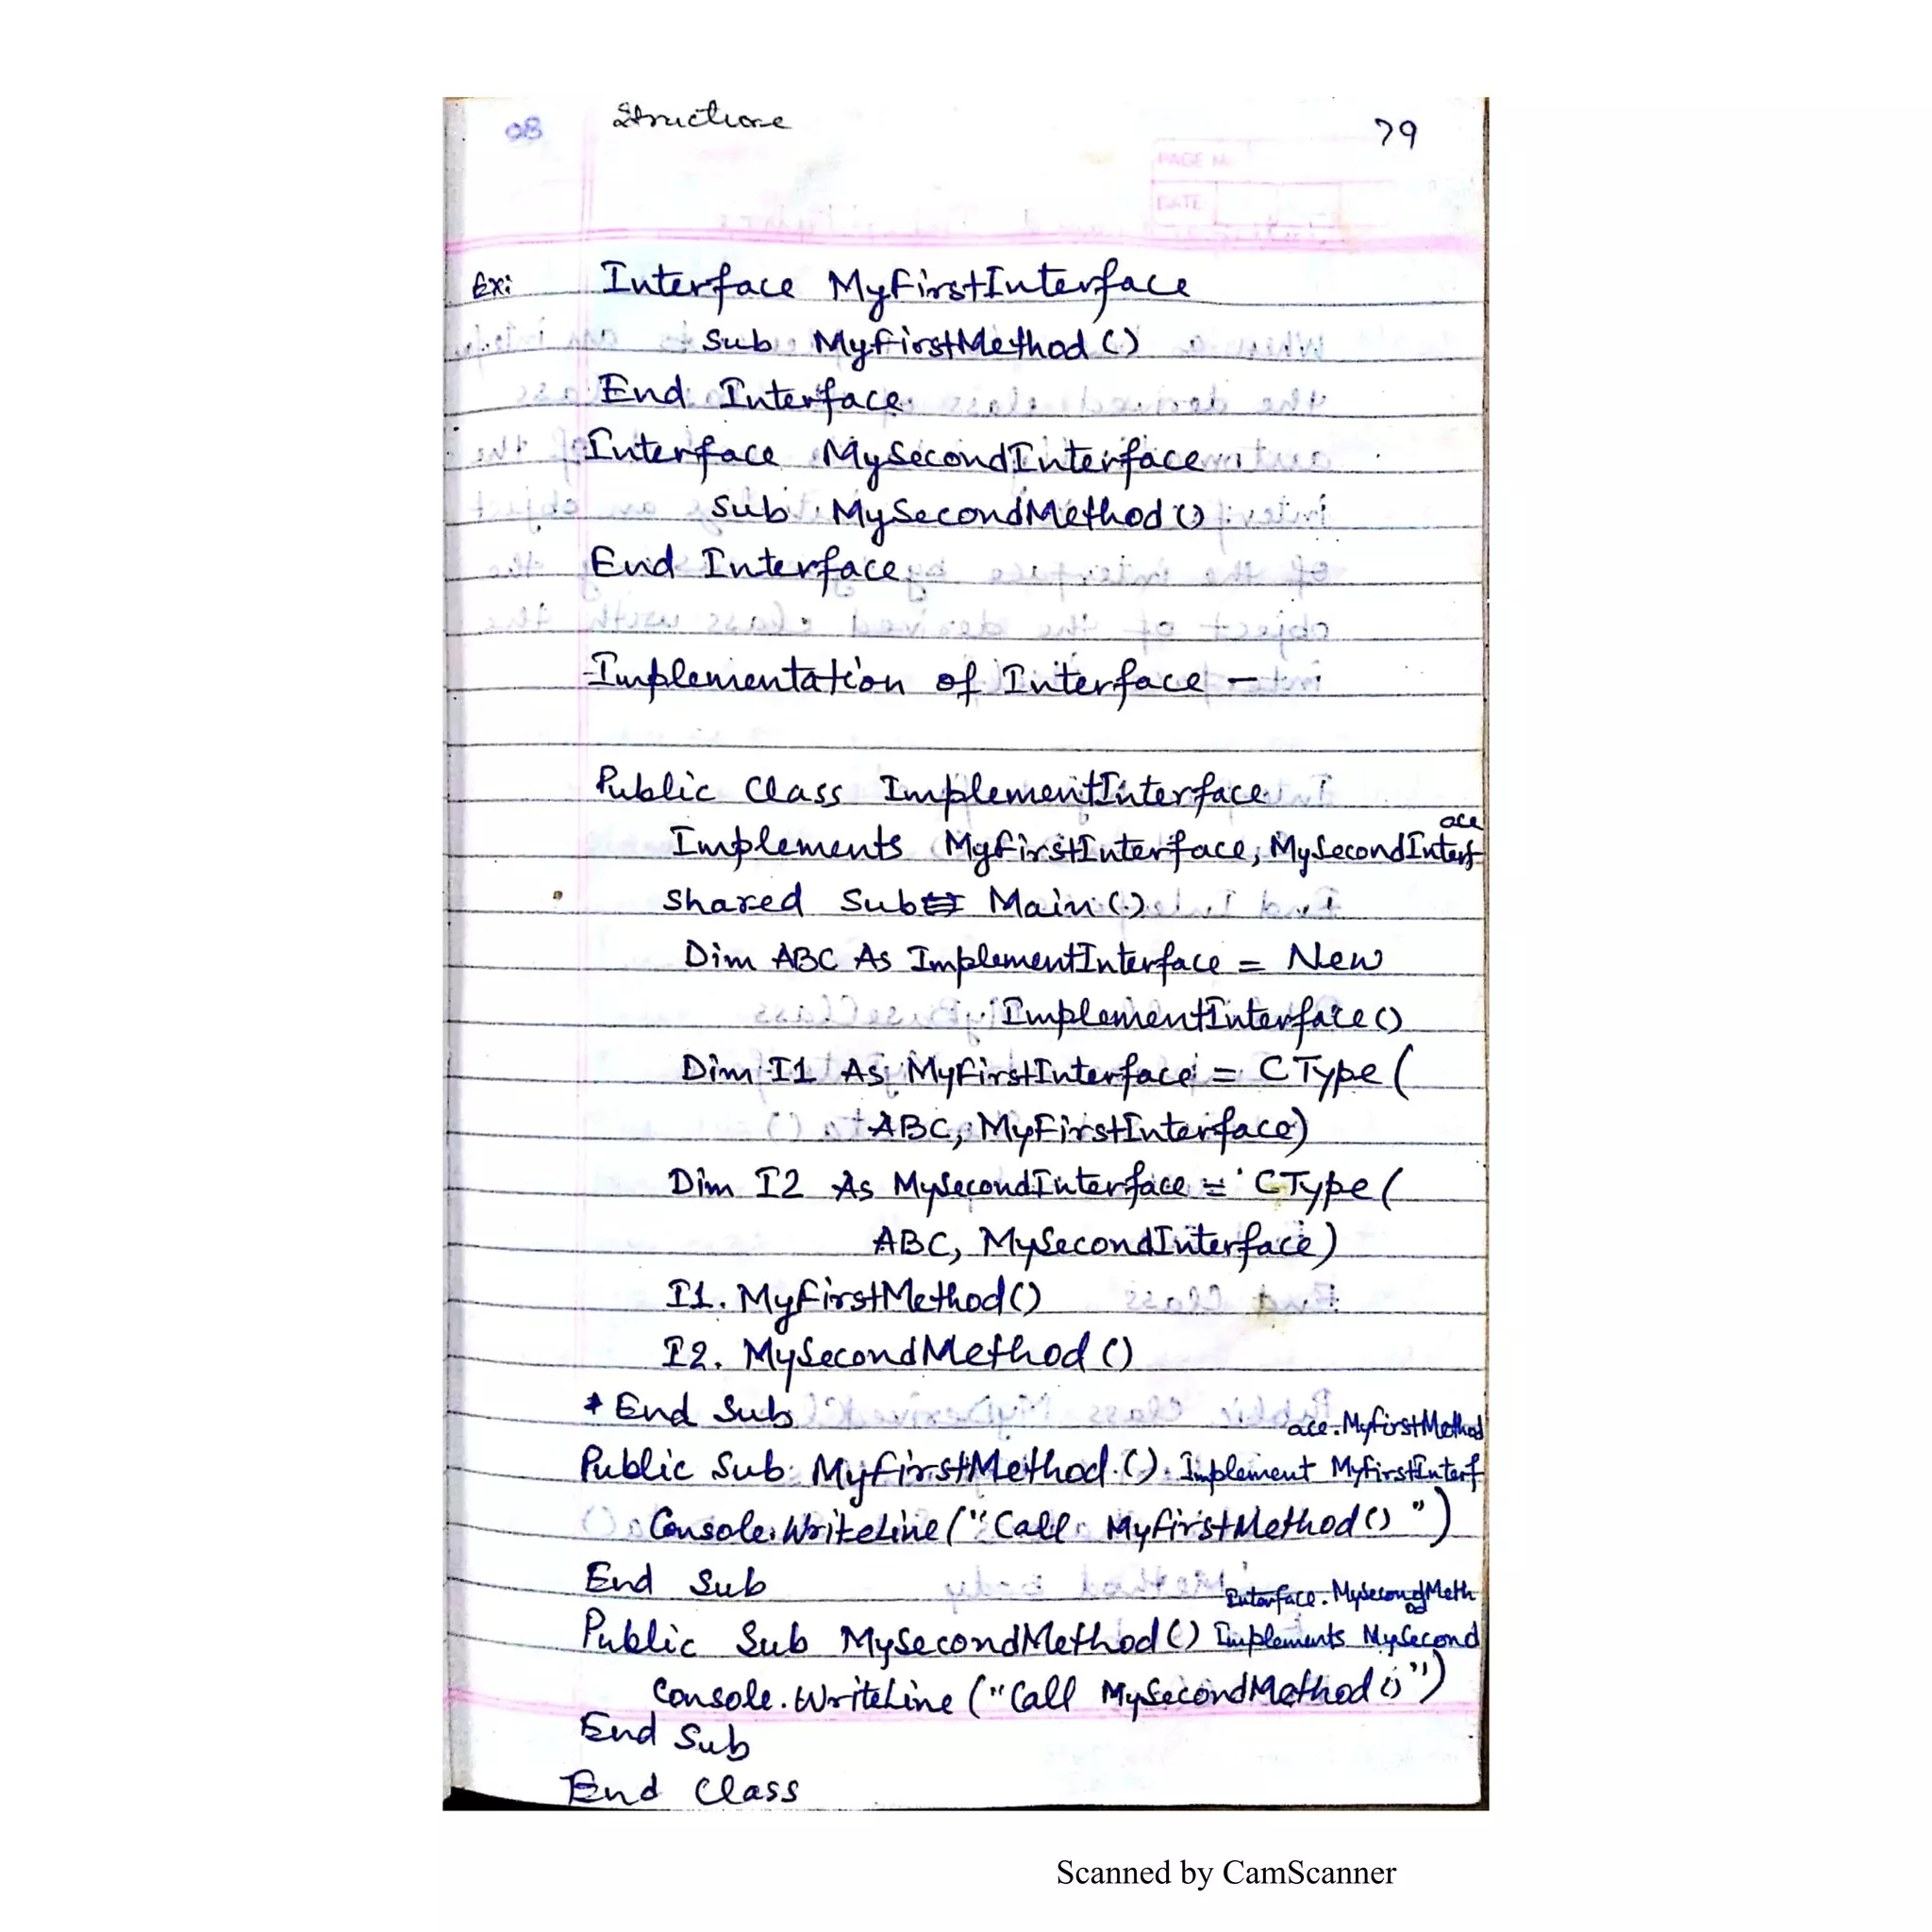 Structure
79
PAGE N
DATE
Ex: Interface MyFirstInterface
Sub MyFirstMethod ()
End Interface
Interface MySecondInterface
Sub MySecondMethod ()
End Interface
Implementation of Interface -
Public Class ImplementInterface
Implements MyFirstInterface, MySecondInterface
Shared Sub Main()
Dim ABC As ImplementInterface = New
ImplementInterface ()
Dim I1 As MyFirstInterface = CType (
ABC, MyFirstInterface)
Dim I2 As MySecondInterface = CType (
ABC, MySecondInterface)
I1. MyFirstMethod ()
I2. MySecondMethod ()
End Sub
Public Sub MyFirstMethod () Implement MyFirstInterface.MyFirstMethod
Console.WriteLine ("Call MyFirstMethod () ")
End Sub
Public Sub MySecondMethod () Implements MySecondInterface.MySecondMethod
Console.WriteLine ("Call MySecondMethod ()")
End Sub
End Class
Scanned by CamScanner